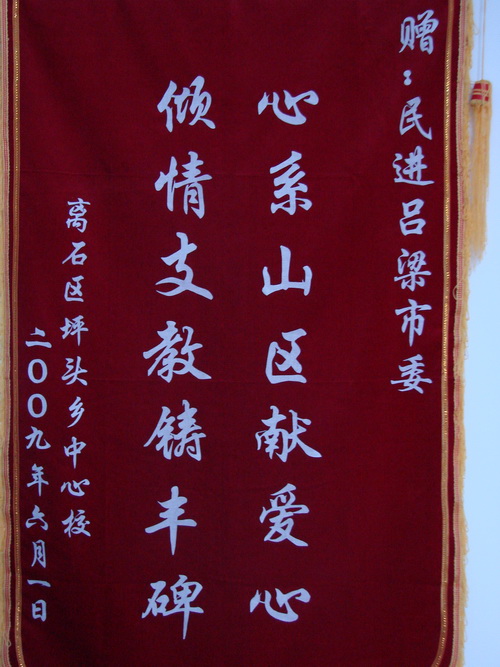 赠：民进吕梁市委
心系山区献爱心
倾情支教铸丰碑
离石区坪头乡中心校
二〇〇九年六月一日